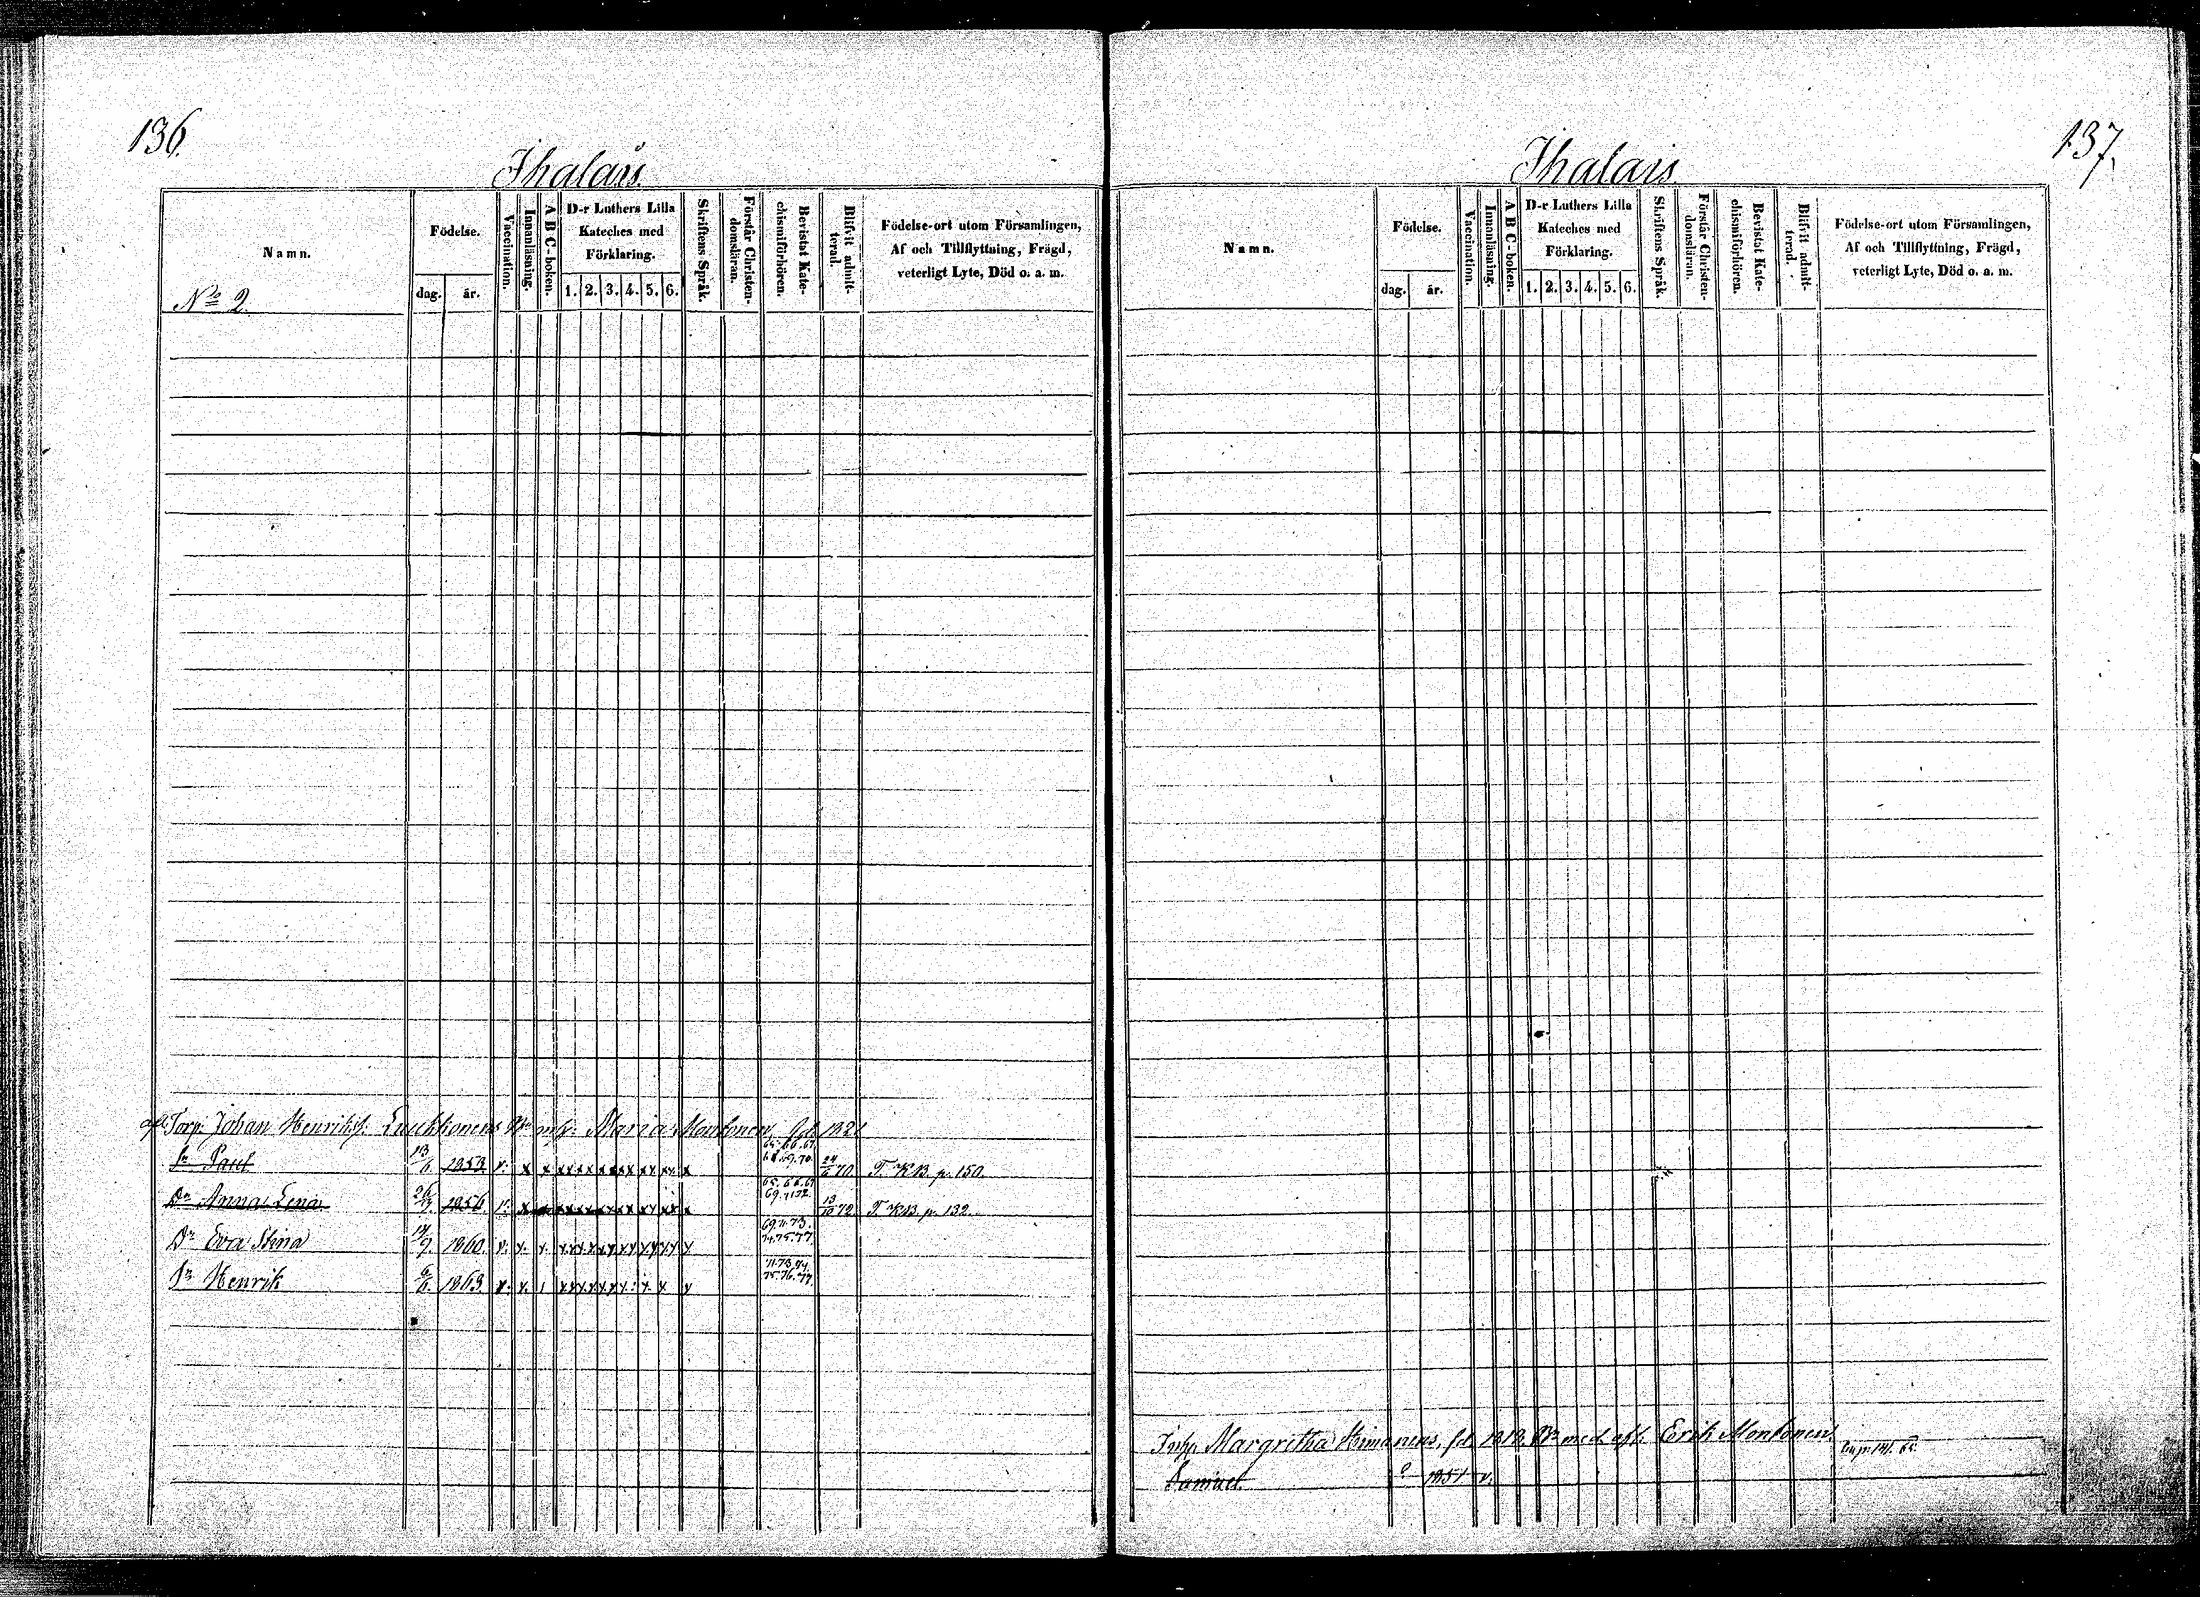 136.
Ihalais.
Namn.
Födelse.
dag.
år.
Vaccination.
Innanläsning.
A B C-boken.
D-r Luthers Lilla
Kateches med
Förklaring.
1. 2. 3. 4. 5. 6.
Skriftens Språk.
Förstår Christen-
domsläran.
Bevistat Kate-
chismiförhören.
Blifvit admit-
terad.
Födelse-ort utom Församlingen,
Af och Tillflyttning, Frägd,
veterligt Lyte, Död o. a. m.
No 2.
afl. Torp. Johan Henriks. Luukkonens Maria Montonen, 1821
Sn Paul 13/6 1853 v. x x xx xx xx xx xx xx x 65. 66. 67. 68. 69. 70. 24/6 70 T. KB. p. 150.
Dr Anna Lena 26/3 1856 v. x 65. 66. 67. 13/10 72 T. KB. p. 132.
Dr Eva Stina 9. 1860. v. x. 69. 71. 73. 74. 75. 77.
Sn Henrik 6/6. 1863. v. x. 71. 73. 74. 75. 76. 77.
137.
Ihalais
Namn.
Födelse.
dag.
år.
Vaccination.
Innanläsning.
A B C-boken.
D-r Luthers Lilla
Kateches med
Förklaring.
1. 2. 3. 4. 5. 6.
Skriftens Språk.
Förstår Christen-
domsläran.
Bevistat Kate-
chismiförhören.
Blifvit admit-
terad.
Födelse-ort utom Församlingen,
Af och Tillflyttning, Frägd,
veterligt Lyte, Död o. a. m.
Inh. Margretha Himanens, fd. 1818. med afl. Erik Montonen.
Samuel. 1851 v.